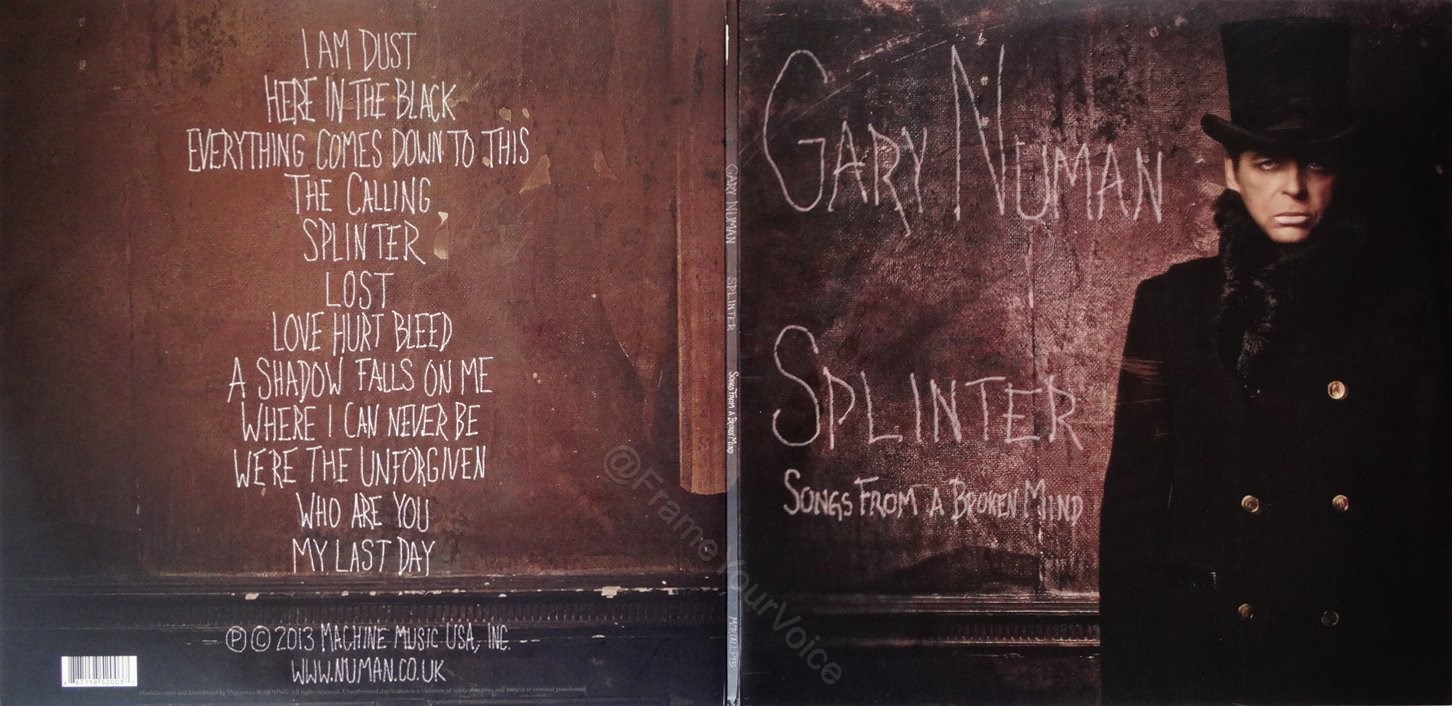 I AM DUST
HERE IN THE BLACK
EVERYTHING COMES DOWN TO THIS
THE CALLING
SPLINTER
LOST
LOVE HURT BLEED
A SHADOW FALLS ON ME
WHERE I CAN NEVER BE
WE'RE THE UNFORGIVEN
WHO ARE YOU
MY LAST DAY
℗ © 2013 MACHINE MUSIC USA, INC.
WWW.NUMAN.CO.UK
GARY NUMAN SPLINTER SONGS FROM A BROKEN MIND
GARY NUMAN
SPLINTER
SONGS FROM A BROKEN MIND
@FrameYourVoice